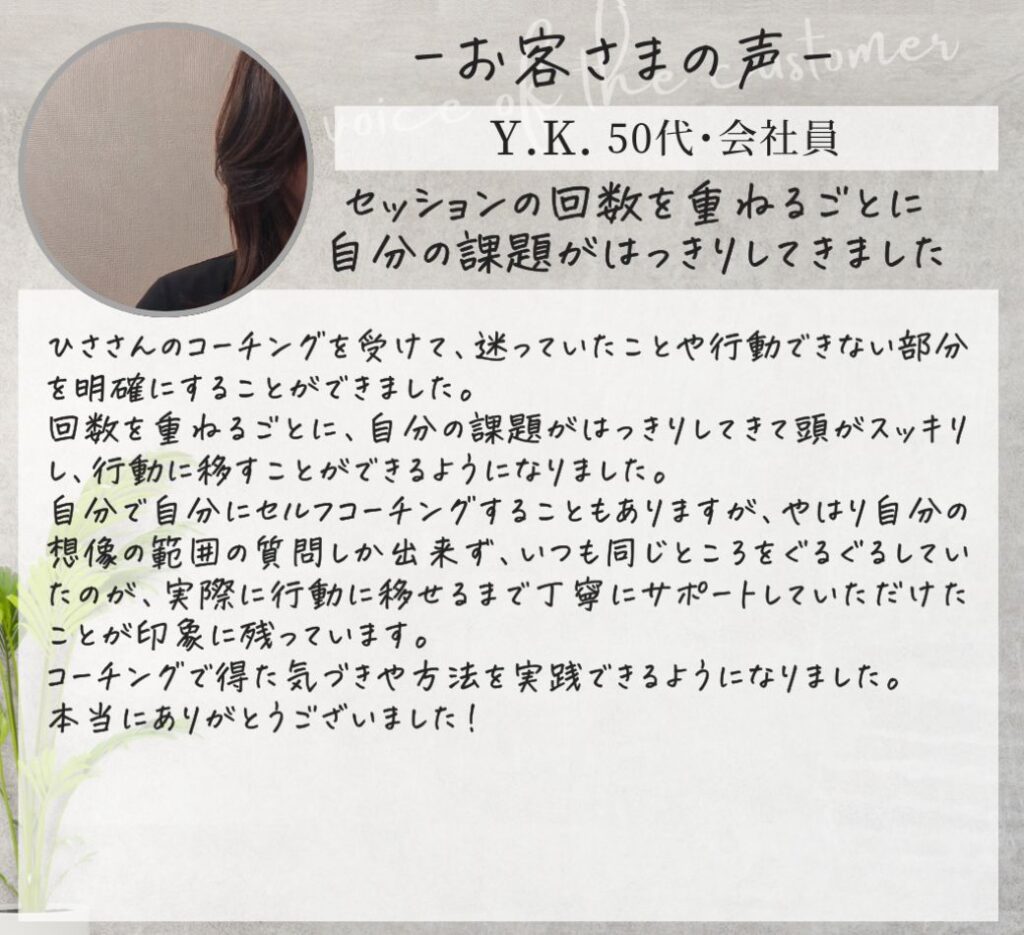 voice of the customer
-お客さまの声-
Y.K. 50代・会社員
セッションの回数を重ねるごとに
自分の課題がはっきりしてきました
ひささんのコーチングを受けて、迷っていたことや行動できない部分
を明確にすることができました。
回数を重ねるごとに、自分の課題がはっきりしてきて頭がスッキリ
し、行動に移すことができるようになりました。
自分で自分にセルフコーチングすることもありますが、やはり自分の
想像の範囲の質問しか出来ず、いつも同じところをぐるぐるしてい
たのが、実際に行動に移せるまで丁寧にサポートしていただけた
ことが印象に残っています。
コーチングで得た気づきや方法を実践できるようになりました。
本当にありがとうございました!